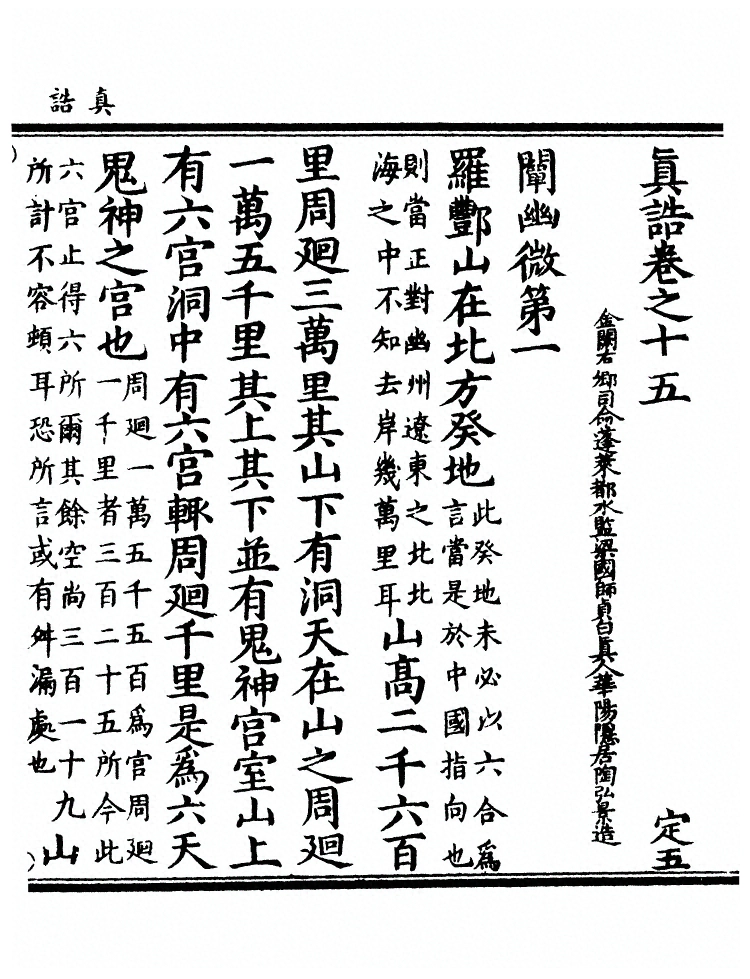 真誥
眞誥卷之十五 定五
金闕右卿司命蓬萊都水監梁國師貞白眞人華陽隱居陶弘景造
闡幽微第一
羅酆山在北方癸地此癸地未必以六合爲言當是於中國指向也
則當正對幽州遼東之北北海之中不知去岸幾萬里耳山高二千六百
里周廻三萬里其山下有洞天在山之周廻
一萬五千里其上其下並有鬼神宫室山上
有六宫洞中有六宫輒周廻千里是爲六天
鬼神之宫也周廻一萬五千五百爲宫周廻一千里者三百二十五所今此
六宫止得六所爾其餘空尚三百一十九所計不容頓耳恐所言或有舛漏處也山